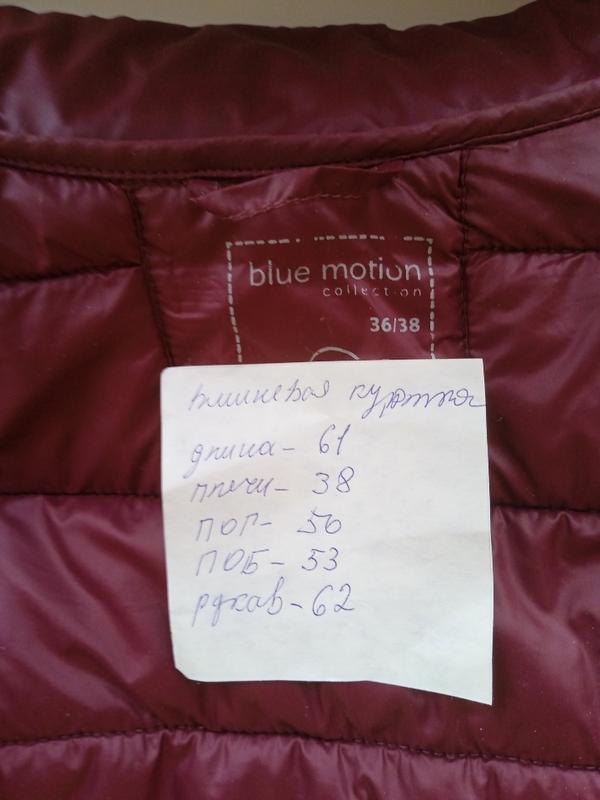 blue motion
collection
36/38
вишневая куртка
длина - 61
плечи - 38
ПОГ - 50
ПОБ - 53
рукав - 62